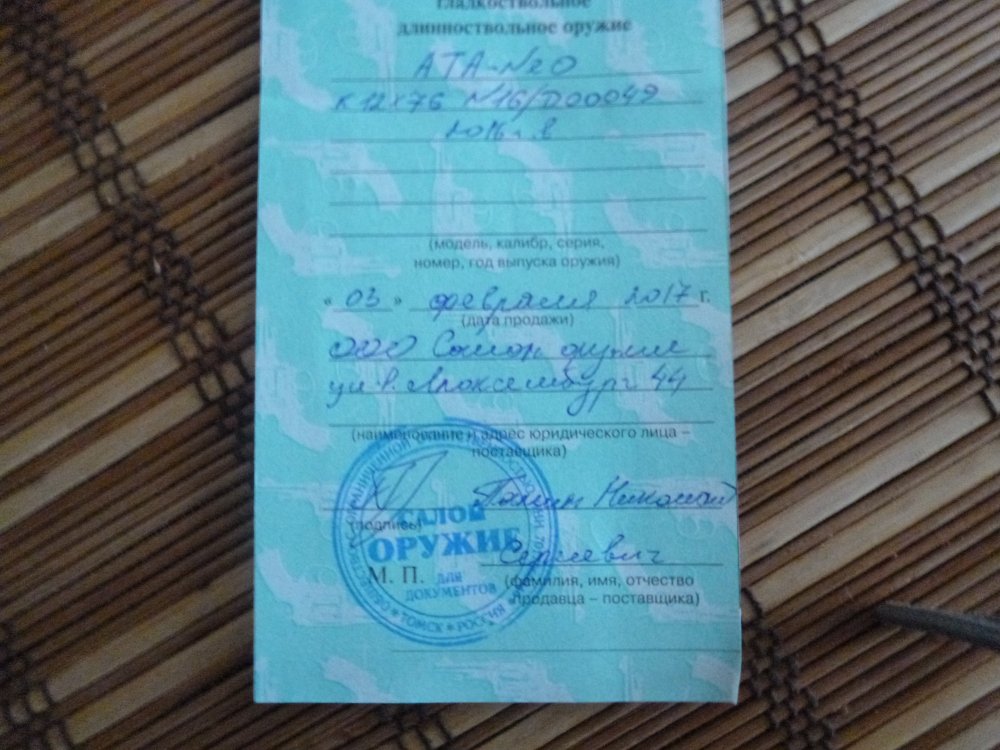 гладкоствольное
длинноствольное оружие
АТА-Neo
к 12х76 N16/D00049
2016 г. в
(модель, калибр, серия,
номер, год выпуска оружия)
« 03 » февраля 2017 г.
(дата продажи)
ООО Салон оружие
ул Р. Люксембург 44
(наименование и адрес юридического лица –
поставщика)
Николай
(подпись)
Сергеевич
М. П.
(фамилия, имя, отчество
продавца – поставщика)
САЛОН
ОРУЖИЕ
ДЛЯ
ДОКУМЕНТОВ
ТОМСК * РОССИЯ